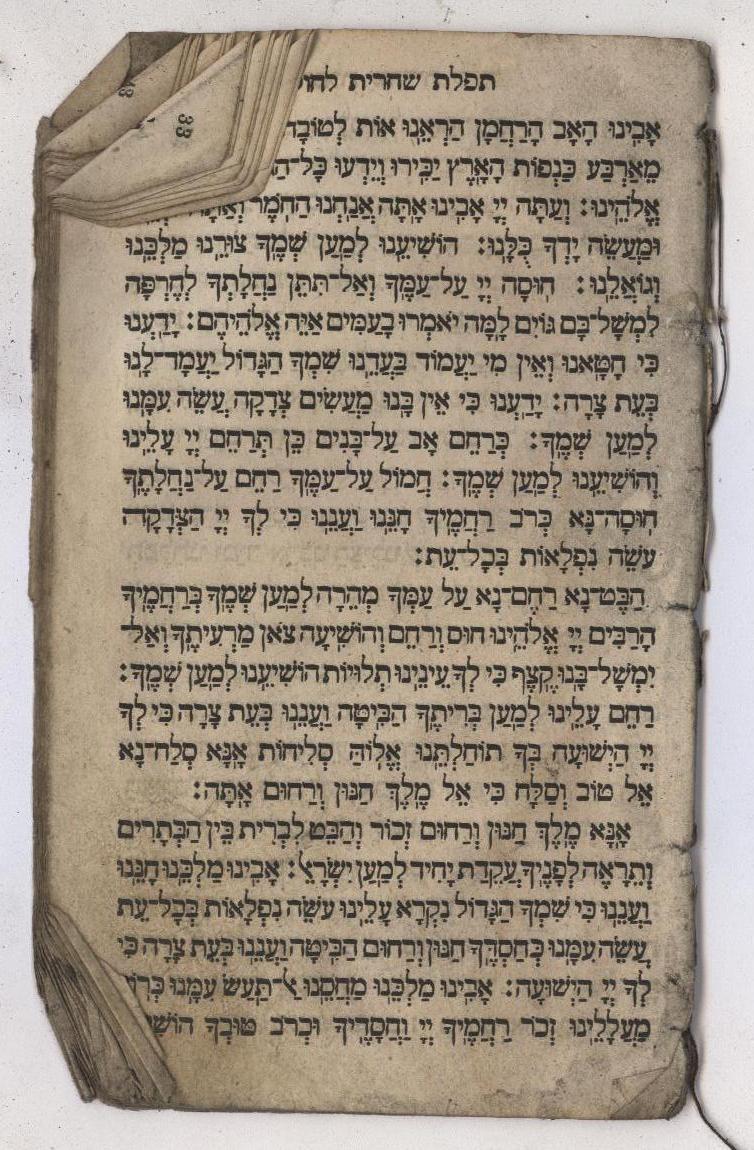 תפלת שחרית
33
אָבִינוּ הָאָב הָרַחְמָן הַרְאֵנוּ אוֹת לְטוֹבָה
מֵאַרְבַּע כַּנְפוֹת הָאָרֶץ יַכִּירוּ וְיֵדְעוּ
אֱלֹהֵינוּ: וְעַתָּה יְיָ אָבִינוּ אַתָּה אֲנַחְנוּ הַחֹמֶר
וּמַעֲשֵׂה יָדְךָ כֻּלָּנוּ: הוֹשִׁיעֵנוּ לְמַעַן שְׁמֶךָ צוּרֵנוּ מַלְכֵּנוּ
וְגוֹאֲלֵנוּ: חוּסָה יְיָ עַל־עַמֶּךָ וְאַל־תִּתֵּן נַחֲלָתְךָ לְחֶרְפָּה
לִמְשָׁל־בָּם גּוֹיִם לָמָּה יֹאמְרוּ בָעַמִּים אַיֵּה אֱלֹהֵיהֶם: יָדַעְנוּ
כִּי חָטָאנוּ וְאֵין מִי יַעֲמוֹד בַּעֲדֵנוּ שִׁמְךָ הַגָּדוֹל יַעֲמָד־לָנוּ
בְּעֵת צָרָה: יָדַעְנוּ כִּי אֵין בָּנוּ מַעֲשִׂים צְדָקָה עֲשֵׂה עִמָּנוּ
לְמַעַן שְׁמֶךָ: כְּרַחֵם אָב עַל־בָּנִים כֵּן תְּרַחֵם יְיָ עָלֵינוּ
וְהוֹשִׁיעֵנוּ לְמַעַן שְׁמֶךָ: חֲמוֹל עַל־עַמֶּךָ רַחֵם עַל־נַחֲלָתֶךָ
חוּסָה־נָּא כְּרֹב רַחֲמֶיךָ חָנֵּנוּ וַעֲנֵנוּ כִּי לְךָ יְיָ הַצְּדָקָה
עֹשֵׂה נִפְלָאוֹת בְּכָל־עֵת:
הַבֶּט־נָא רַחֶם־נָא עַל עַמְּךָ מְהֵרָה לְמַעַן שְׁמֶךָ בְּרַחֲמֶיךָ
הָרַבִּים יְיָ אֱלֹהֵינוּ חוּס וְרַחֵם וְהוֹשִׁיעָה צֹאן מַרְעִיתֶךָ וְאַל־
יִמְשָׁל־בָּנוּ קֶצֶף כִּי לְךָ עֵינֵינוּ תְלוּיוֹת הוֹשִׁיעֵנוּ לְמַעַן שְׁמֶךָ:
רַחֵם עָלֵינוּ לְמַעַן בְּרִיתֶךָ הַבִּיטָה וַעֲנֵנוּ בְּעֵת צָרָה כִּי לְךָ
יְיָ הַיְשׁוּעָה בְּךָ תוֹחַלְתֵּנוּ אֱלוֹהַּ סְלִיחוֹת אָנָּא סְלַח־נָא
אֵל טוֹב וְסַלָּח כִּי אֵל מֶלֶךְ חַנּוּן וְרַחוּם אָתָּה:
אָנָּא מֶלֶךְ חַנּוּן וְרַחוּם זְכוֹר וְהַבֵּט לִבְרִית בֵּין הַבְּתָרִים
וְתֵרָאֶה לְפָנֶיךָ עֲקֵדַת יָחִיד לְמַעַן יִשְׂרָאֵל: אָבִינוּ מַלְכֵּנוּ חָנֵּנוּ
וַעֲנֵנוּ כִּי שִׁמְךָ הַגָּדוֹל נִקְרָא עָלֵינוּ עֹשֵׂה נִפְלָאוֹת בְּכָל־עֵת
עֲשֵׂה עִמָּנוּ כְּחַסְדֶּךָ חַנּוּן וְרַחוּם הַבִּיטָה וַעֲנֵנוּ בְּעֵת צָרָה כִּי
לְךָ יְיָ הַיְשׁוּעָה: אָבִינוּ מַלְכֵּנוּ מַחֲסֵנוּ אַל־תַּעַשׂ עִמָּנוּ כְּרוֹעַ
מַעֲלָלֵינוּ זְכֹר רַחֲמֶיךָ יְיָ וַחֲסָדֶיךָ וּכְרֹב טוּבְךָ